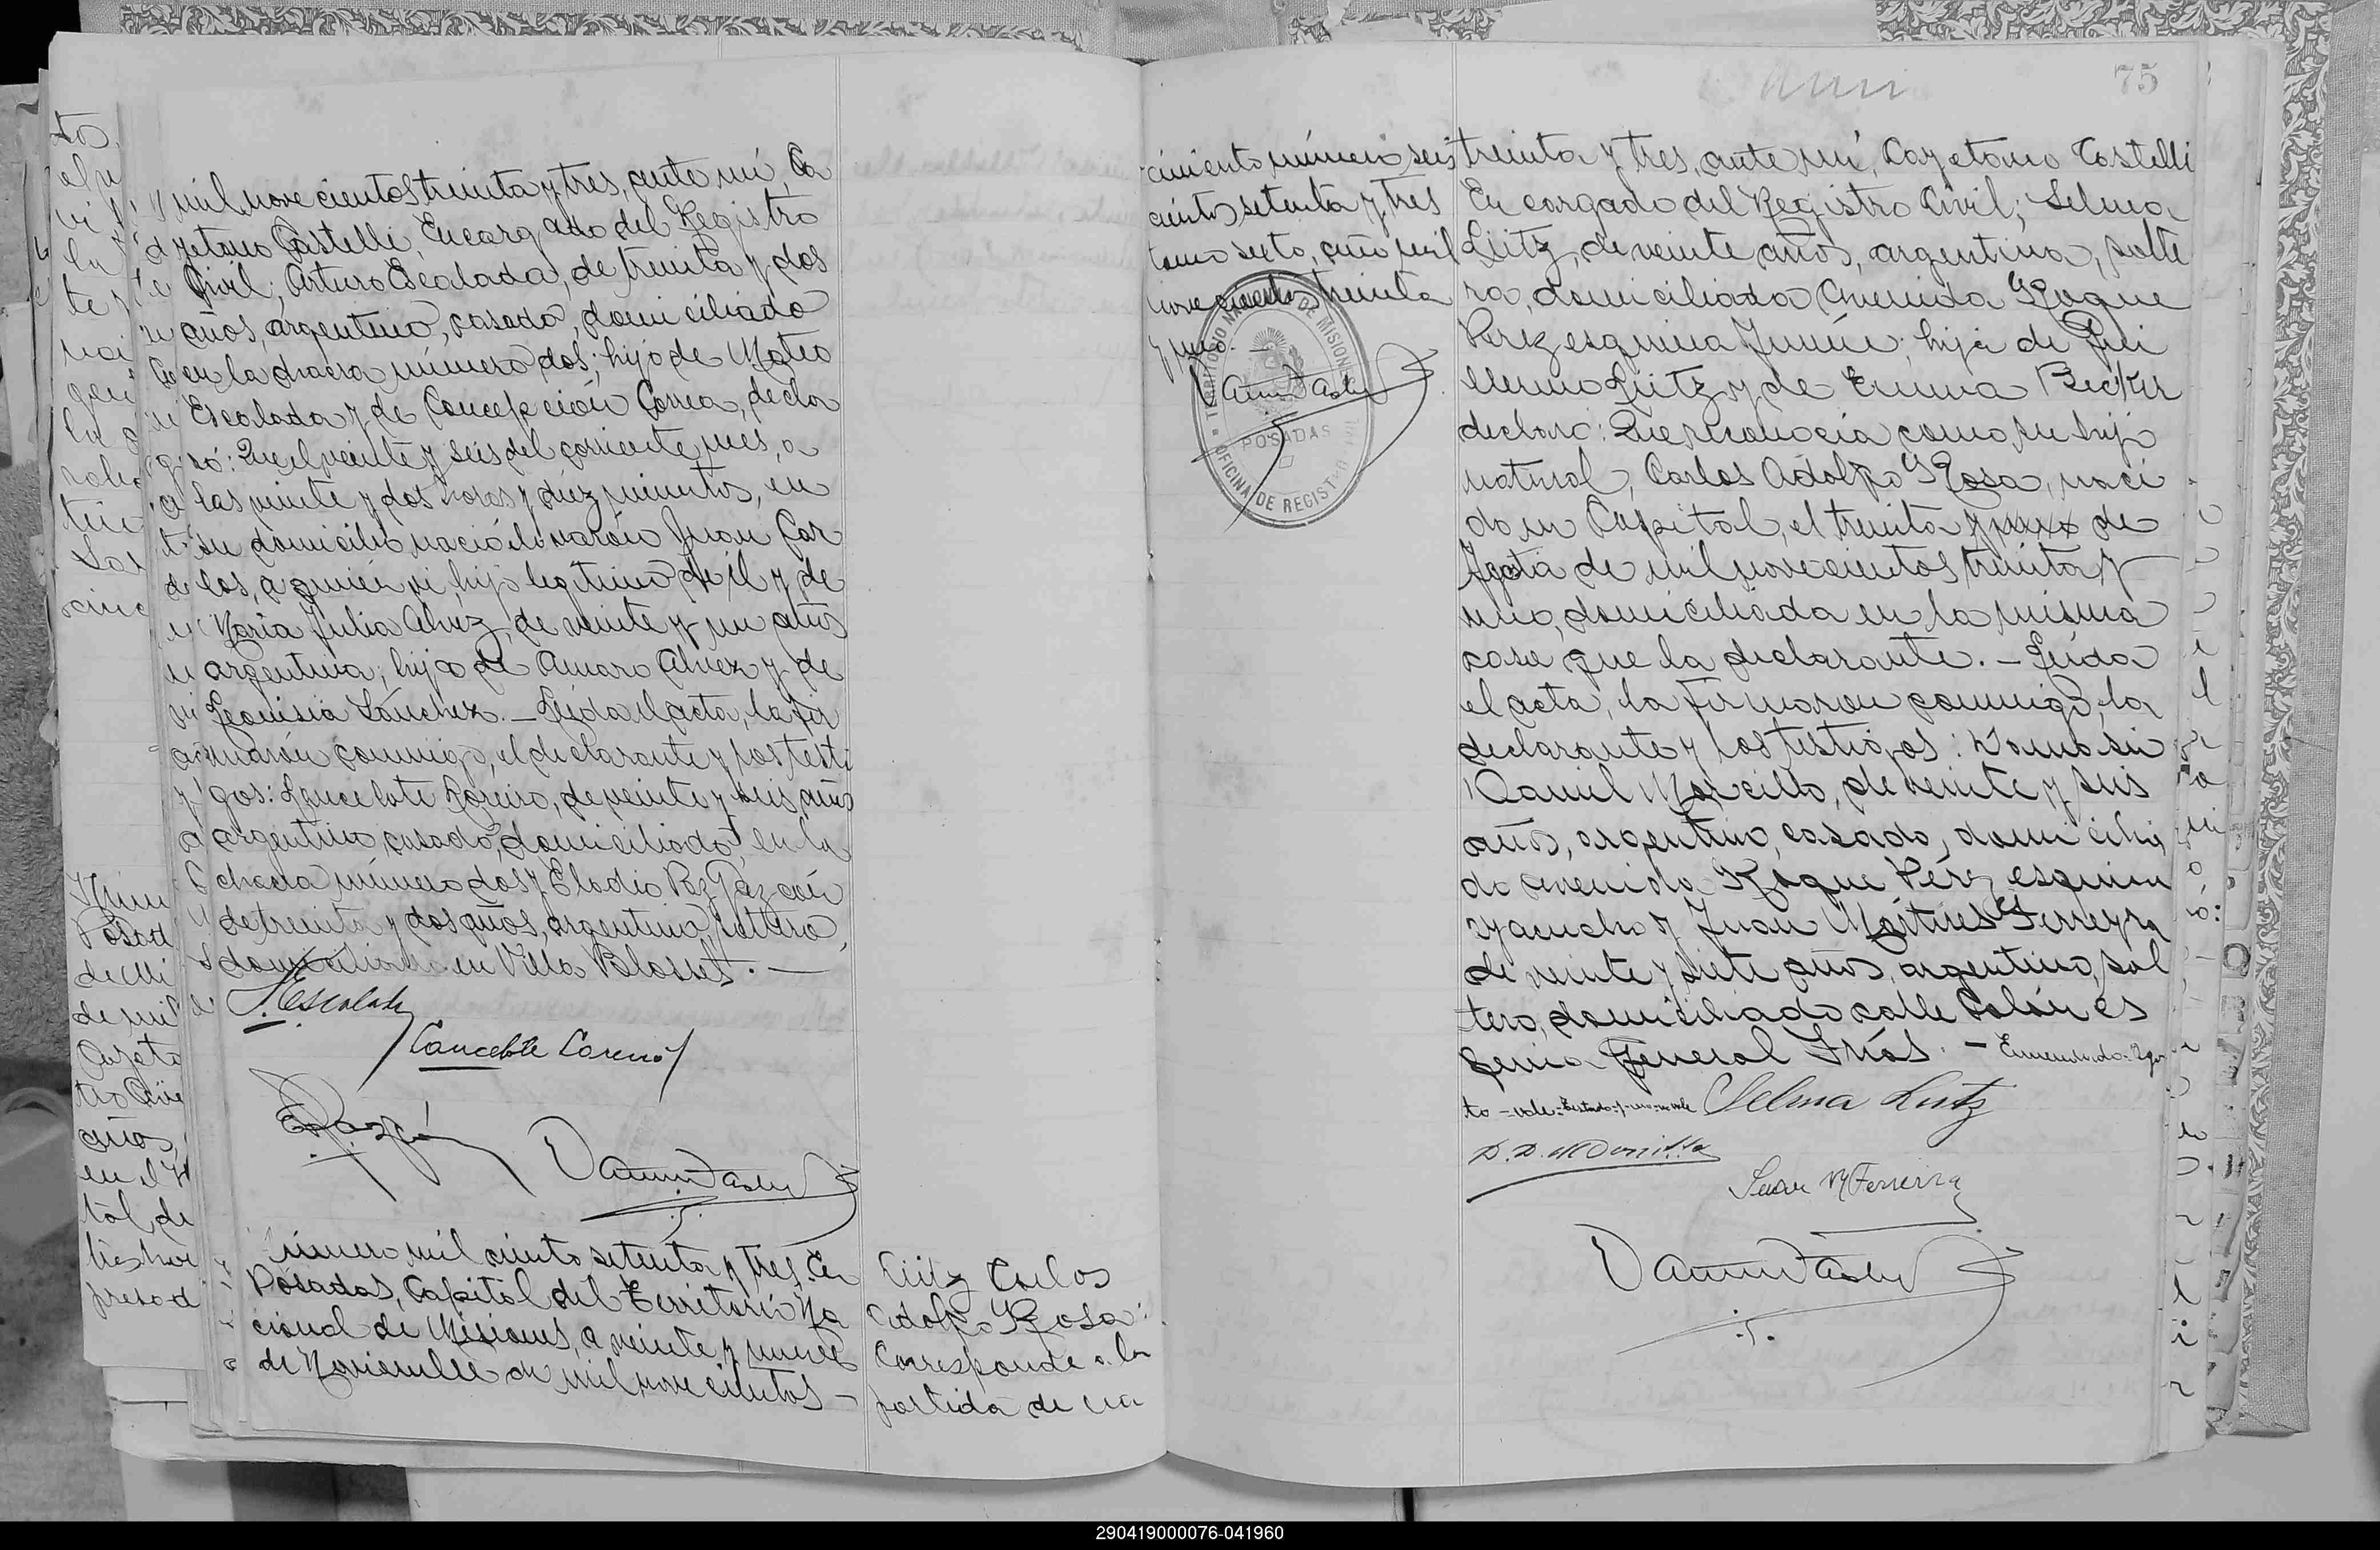 mil novecientos treinta y tres, ante mí, Ca
yetano Castelli, Encargado del Registro
Civil; Arturo Escalada, de treinta y dos
años, argentino, casado, domiciliado
en la chacra número dos; hijo de Mateo
Escalada y de Concepción Correa, decla
ró: Que el veinte y seis del corriente mes, a
las veinte y dos horas y diez minutos, en
su domicilio nació el varón Juan Car
los, a quien vi, hijo legítimo de él y de
María Julia Alvez, de veinte y un años
argentina, hija de Amaro Alvez y de
Leonisia Sánchez. — Leída el acta, la fir
maron conmigo, el declarante y los testi
gos: Lancelote Loreiro, de veinte y seis años
argentino, casado, domiciliado en la
chacra número dos y Eladio Paz
de treinta y dos años, argentino, soltero,
domiciliado en Villa Blosset. —
A. Escalada
Lancelote
Número mil ciento setenta y tres. En
Posadas, Capital del Territorio Na
cional de Misiones, a veinte y nueve
de Noviembre de mil novecientos —
Lütz Carlos
Adolfo Rosa:
Corresponde a la
partida de na
cimiento número seis
cientos setenta y tres
tomo sexto, año mil
novecientos treinta
y uno. —
TERRITORIO NACIONAL DE MISIONES
POSADAS
OFICINA DE REGISTRO CIVIL
75
treinta y tres, ante mí, Cayetano Castelli
Encargado del Registro Civil; Selma
Lütz, de veinte años, argentina, solte
ra, domiciliada Avenida Roque
Perez esquina Junín; hija de Gui
llermo Lütz y de Emma Becker
declaró: Que reconocía como su hijo
natural, Carlos Adolfo Rosa, naci
do en Capital, el treinta y uno de
Agosto de mil novecientos treinta y
uno, domiciliada en la misma
casa que la declarante. — Leída
el acta, la firmaron conmigo, la
declarante y los testigos:
Daniel de veinte y seis
años, argentino, casado, domicilia
do avenida Roque Pérez esquina
Ayacucho y Juan Martires Ferreyra
de veinte y siete años, argentino, sol
tero, domiciliado calle Colón es
quina General Frías. — Enmendado: Agos
to — vale. Testado: y uno: no vale
Selma Lütz
Juan M Ferreira
290419000076-041960